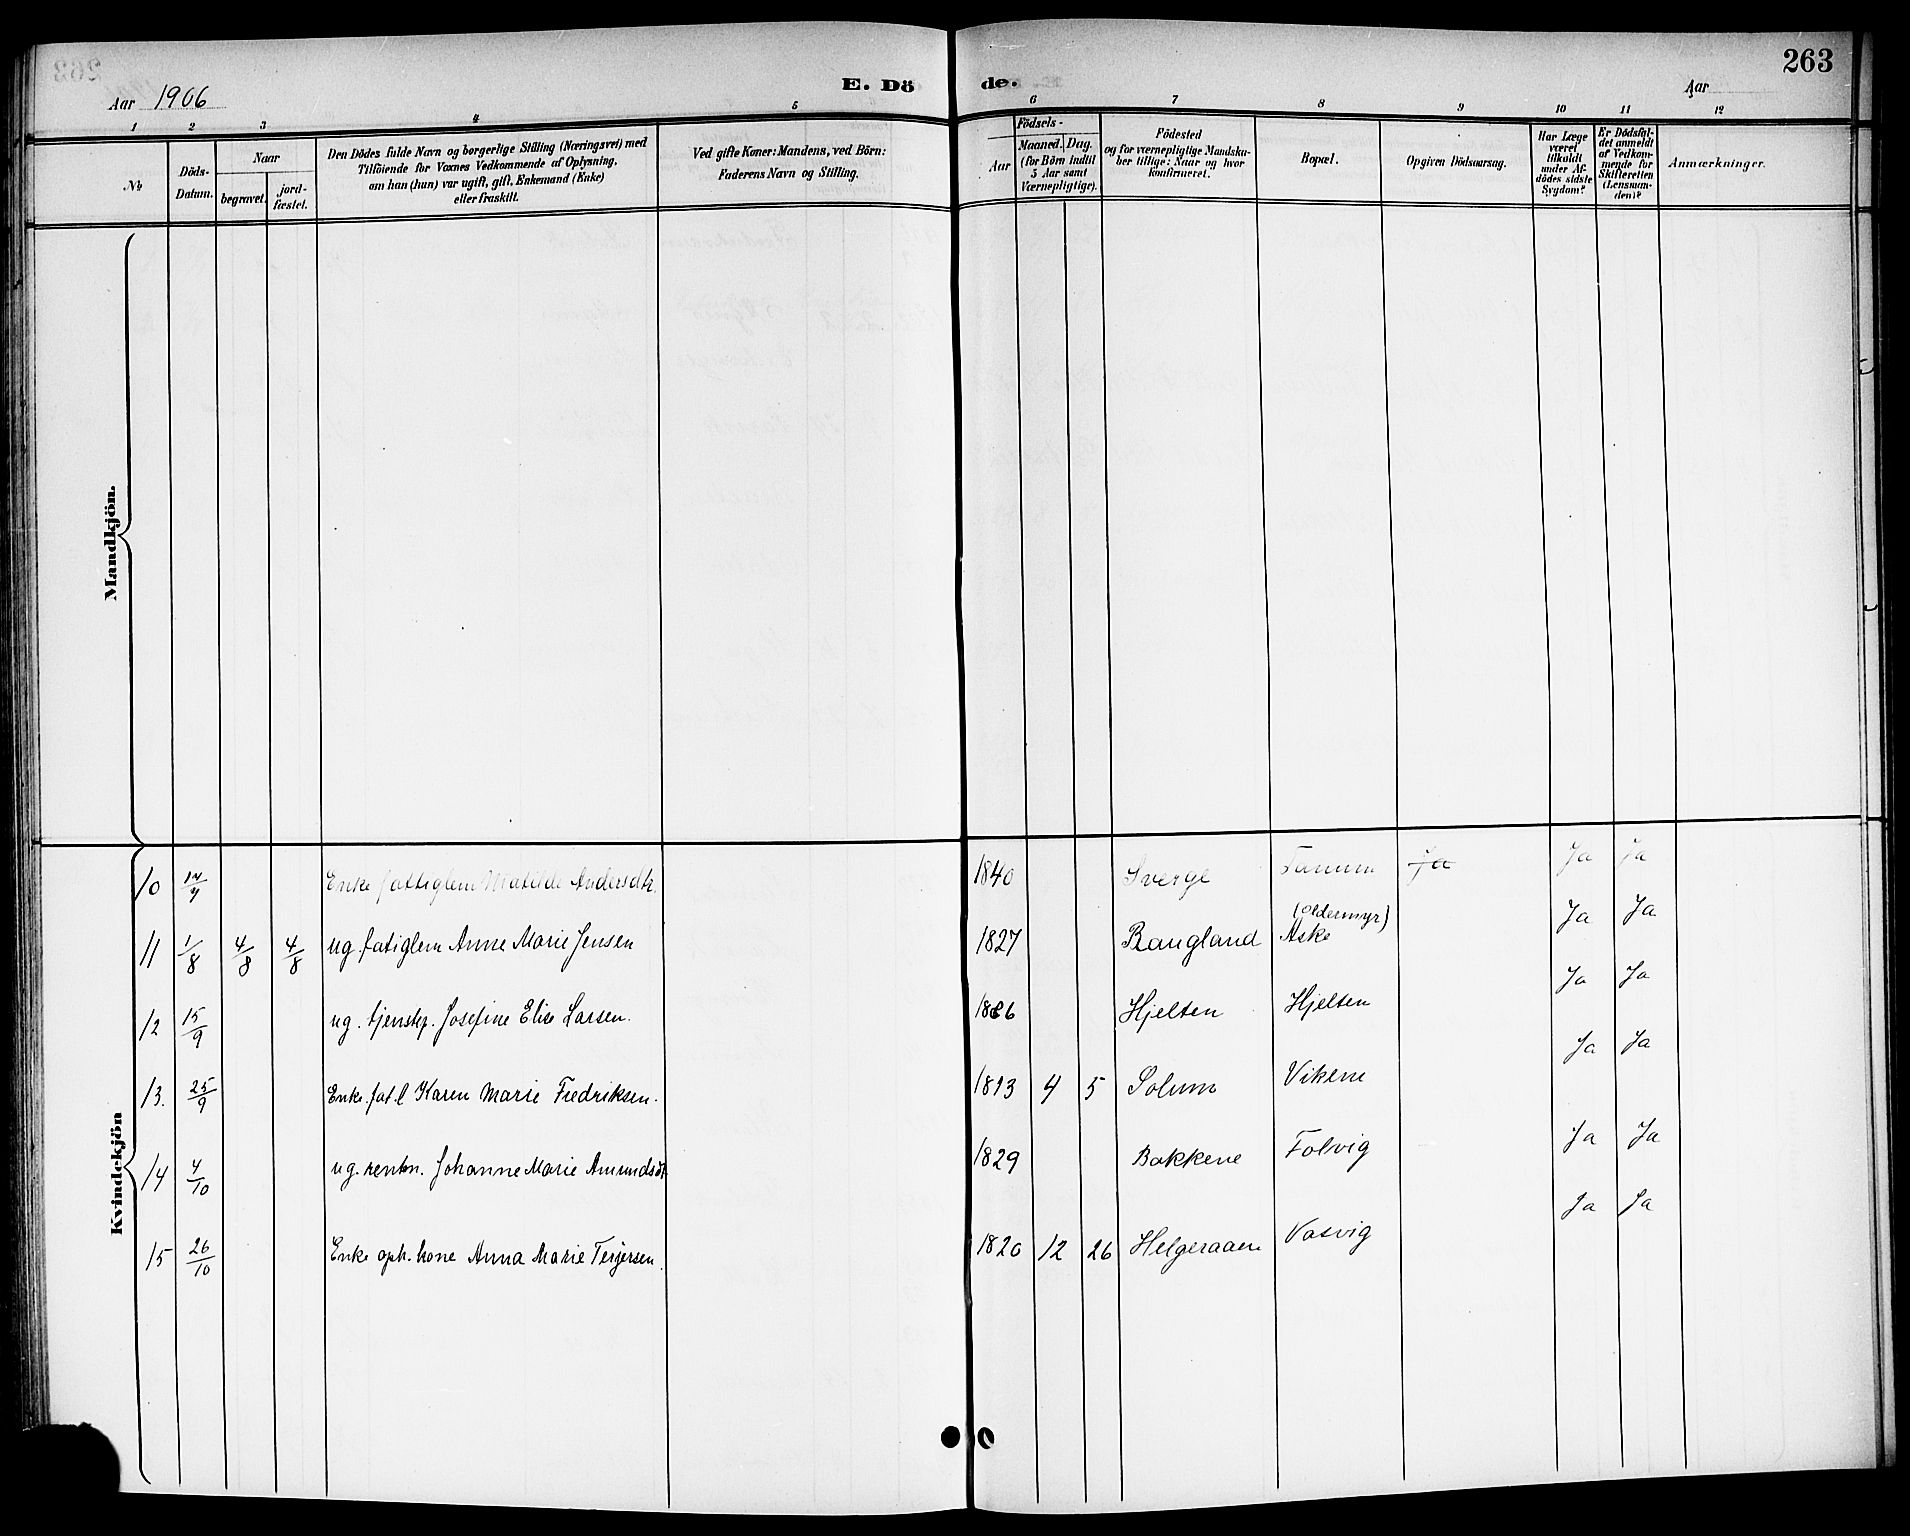 Aar 1906
E. Dö
de.
Aar
263
1 2 3 4 5 6 7 8 9 10 11 12
No
Döds-
Datum.
Naar
begravet.
jord-
fæstet.
Den Dödes fulde Navn og borgerlige Stilling (Næringsvei) med
Tilföiende for Voxnes Vedkommende af Oplysning,
om han (hun) var ugift, gift, Enkemand (Enke)
eller fraskilt.
Ved gifte Koner: Mandens, ved Börn:
Faderens Navn og Stilling.
Födsels-
Aar
Maaned. Dag.
(for Börn indtil
5 Aar samt
Værnepligtige).
Födested
og for værnepligtige Mandska-
ber tillige: Naar og hvor
konfirmeret.
Bopæl.
Opgiven Dödsaarsag.
Har Læge
været
tilkaldt
under Af-
dödes sidste
Sygdom?
Er Dödsfal-
det anmeldt
af Vedkom-
mende for
Skifteretten
(Lensman-
den)?
Anmærkninger.
Mandkjön.
Kvindekjön
10 14/7 Enke fattiglem Matilde Andersdtr. 1840 Sverge Tanum Ja Ja Ja
11 1/8 4/8 4/8 ug. fatiglem Anne Marie Jensen 1827 Baugland (Oldermyr) Aske Ja Ja
12 15/9 ug. tjenstp. Josefine Elise Larsen. Hjelten Hjelten Ja Ja
13. 25/9 Enke fat.l Karen Marie Fredriksen. 1813 4 5 Solum Vikene Ja Ja
14 4/10 ug. rentn. Johanne Marie Amundsdt 1829 Bakkene Folvig Ja Ja
15 26/10 Enke oph. kone Anna Marie Terjersen. 1820 12 26 Helgeraaen Vasvig Ja Ja